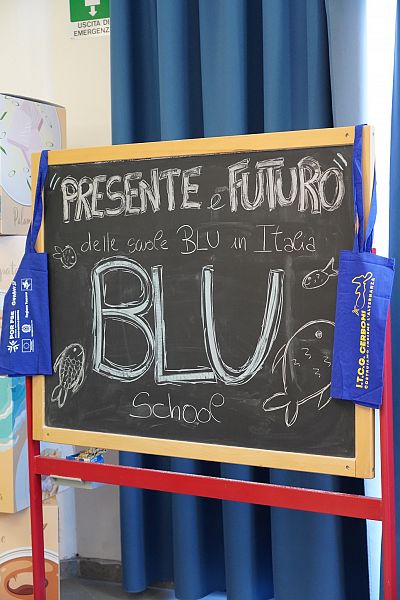 USCITA DI
EMERGENZA
"PRESENTE e FUTURO"
delle scuole BLU in Italia
BLU
School
POR FSE
I.T.C.G. CERBONI